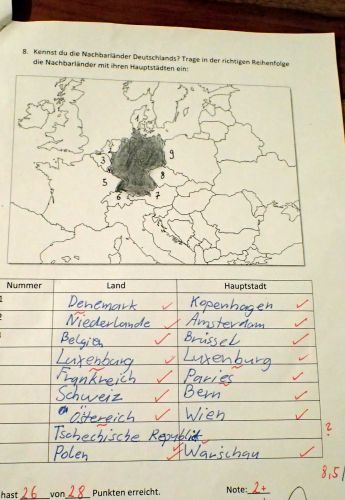 8. Kennst du die Nachbarländer Deutschlands? Trage in der richtigen Reihenfolge
die Nachbarländer mit ihren Hauptstädten ein:
3
9
8
5
6
7
Nummer Land Hauptstadt
1 Denemark Kopenhagen
2 Niederlande Amsterdam
3 Belgien Brüssel
Luxenburg Luxenburg
Frankreich Paries
Schweiz Bern
Östereich Wien
Tschechische Republik ?
Polen Warschau
8,5/
hast 26 von 28 Punkten erreicht. Note: 2+